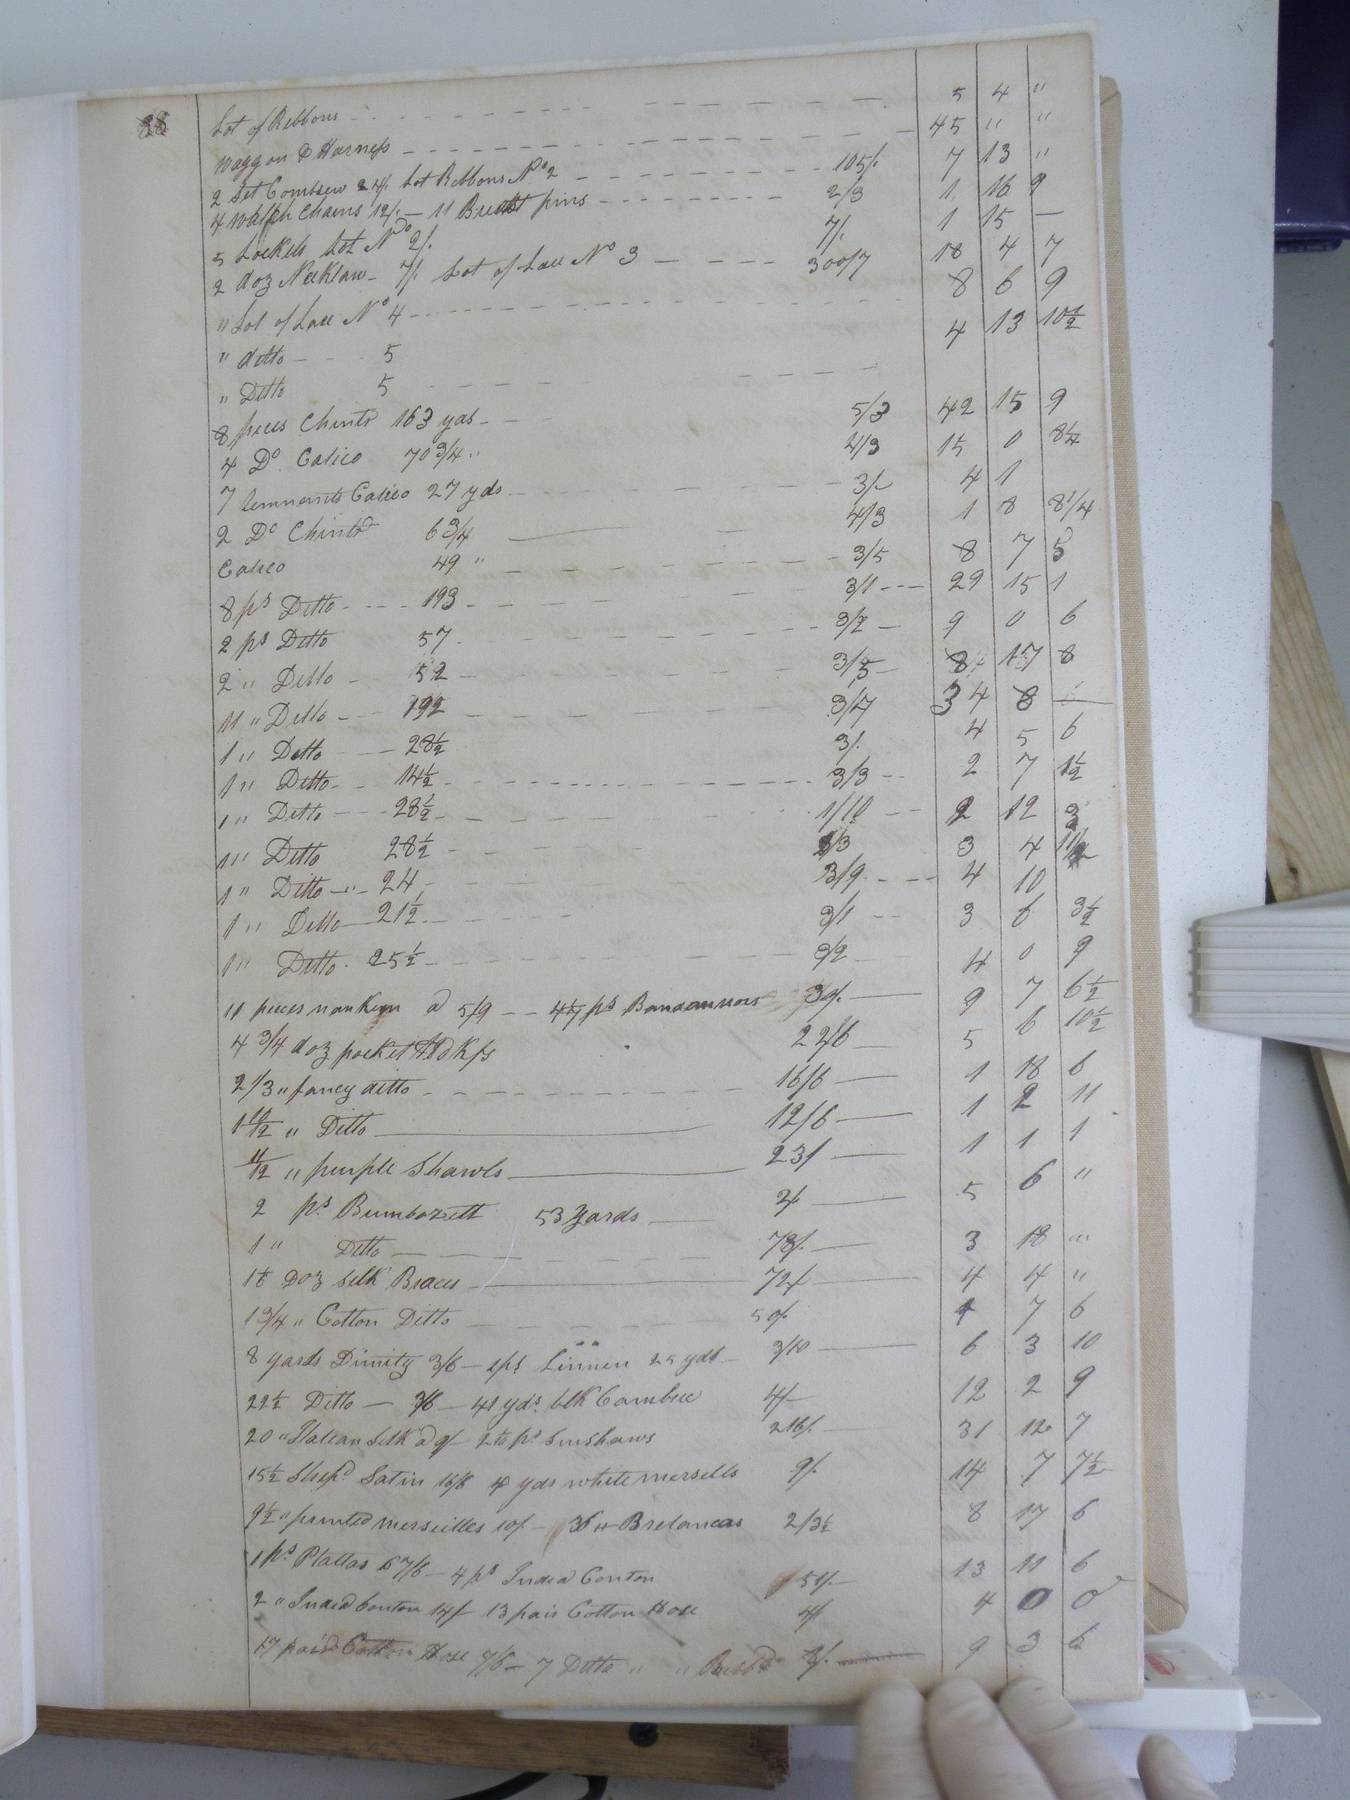 88
Lot of Ribbons 5 4 "
Waggon & Harness 45 " "
2 Set Combs 24/. Lot Ribbons No 2 105/. 7 13 "
4 Watch Chains 12/. — 11 Breast pins 2/3 1 16 9
5 Lockets Lot No 2/. 7/. 1 15 —
2 doz Necklaces 7/. Lot of Lace No 3 300/7 18 4 7
" Lot of Lace No 4 8 6 9
" ditto 5 4 13 10½
" Ditto 5
8 pieces Chints 163 yds 5/3 42 15 9
4 Do Calico 70 3/4 " 4/3 15 0 8¼
7 remnants Calico 27 yds 3/. 4 1
2 Do Chints 6 3/4 4/3 1 8 8 1/4
Calico 49 " 3/5 8 7 5
8 ps Ditto 193 3/1 29 15 1
2 ps Ditto 57 3/2 9 0 6
2 " Ditto 52 3/5 8 17 8
11 " Ditto 192 3/7 34 8 —
1 " Ditto 28½ 3/. 4 5 6
1 " Ditto 14½ 3/3 2 7 1½
1 " Ditto 28½ 1/10 2 12 3
1 " Ditto 28½ 2/3 3 4
1 " Ditto " 24 3/9 4 10
1 " Ditto 21½ 3/1 3 6 3½
1 " Ditto 25½ 3/2 4 0 9
11 pieces nankeen @ 5/9 — ps Bandannas 30/. 9 7 6½
4 3/4 doz pocket Hdkfs 22/6 5 6 10½
2 1/3 " fancy ditto 16/6 1 18 6
1 10/12 " Ditto 12/6 1 2 11
11/12 " purple Shawls 23/ 1 1 1
2 ps Bumbozett 53 yards 2/ 5 6 "
1 " Ditto 78/. 3 18 "
1 1/6 Doz silk Braces 72/ 4 4 "
1 3/4 " Cotton Ditto 50/. 4 7 6
8 yards Dimity 3/6 — 1 ps Linnen 25 yds 3/10 6 3 10
22½ Ditto — 3/6 — 41 yds blk Cambric 4/ 12 2 9
20 " Italian Silk @ 9/ ps Sinshaws 216/. 31 12 7
15½ Satin 16/6 4 yds white mersells 9/. 14 7 7½
9½ " printed merseilles 10/ — 36 " Bretancas 2/3½ 8 17 6
1 ps Plattas 67/6 — 4 ps India Conton 51/. 13 11 6
2 " India Conton 14/ 13 pair Cotton Hose 4/ 4 0 0
17 pairs Cotton Hose 7/6 — 7 Ditto " " Ribbd 8/. 9 3 6